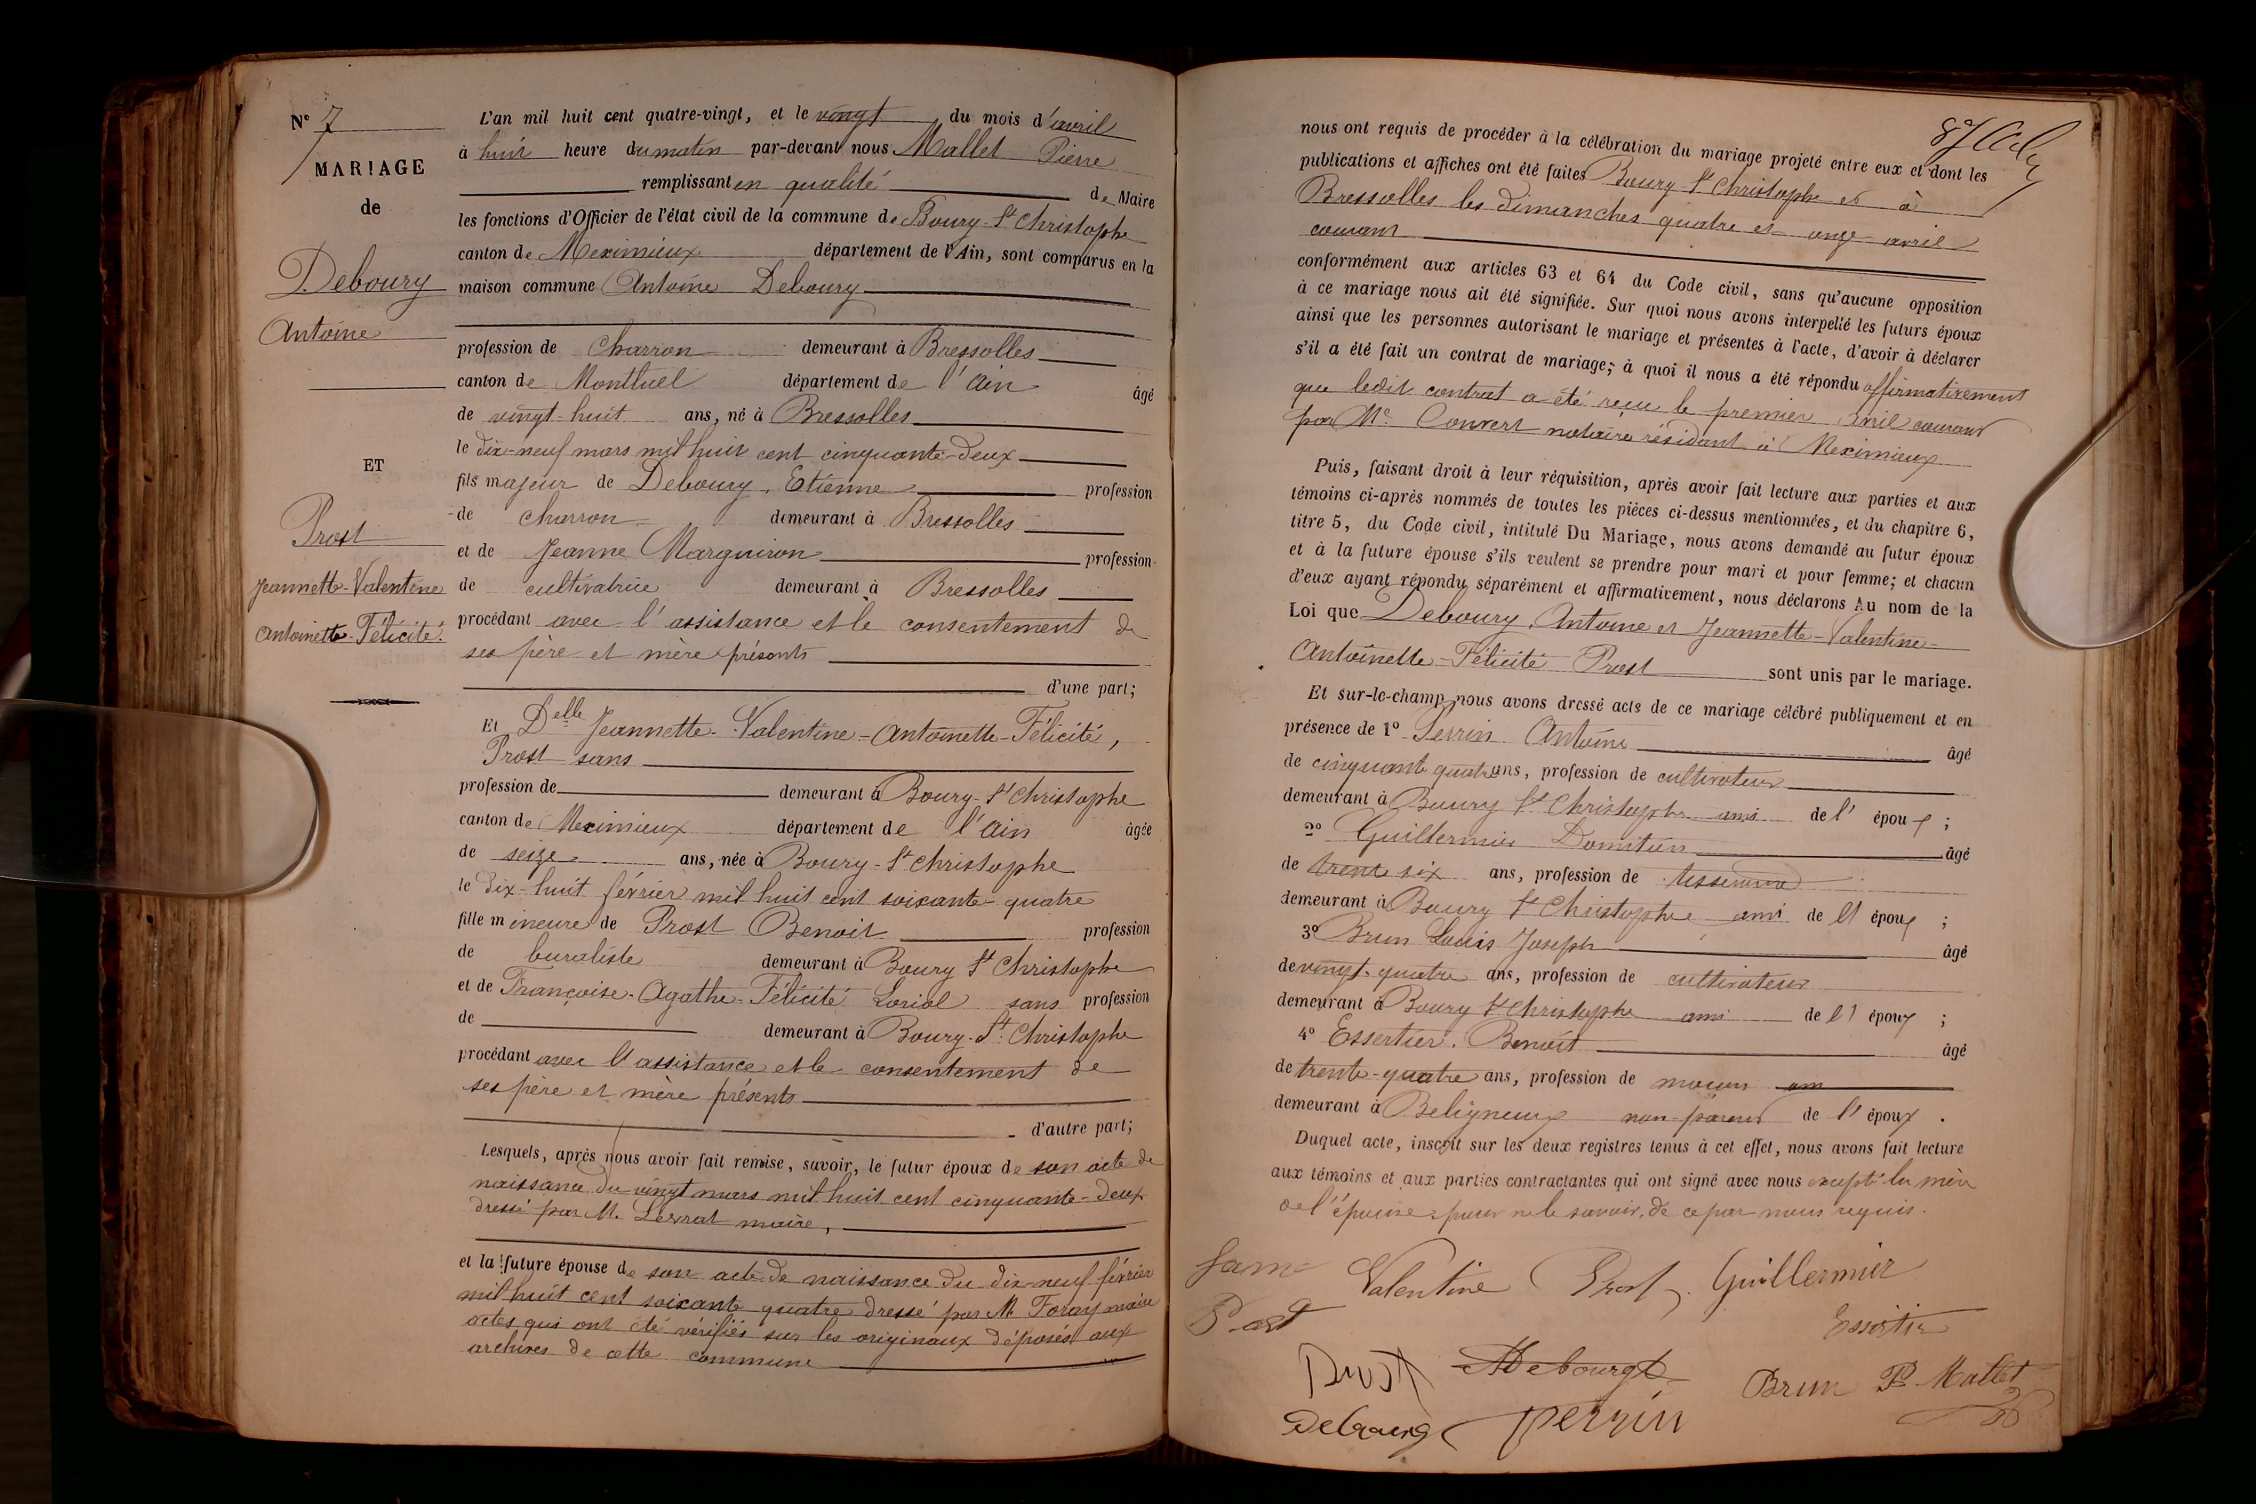 N° 7
MARIAGE
de
Deboury
Antoine
ET
Prost
Jeannette-Valentine
Antoinette-Félicité.
L'an mil huit cent quatre-vingt, et le vingt du mois d'avril
à huit heure du matin par-devant nous Mallet Pierre
remplissant en qualité de Maire
les fonctions d'Officier de l'état civil de la commune de Boury-St Christophe
canton de Meximieux département de l'Ain, sont comparus en la
maison commune Antoine Deboury
profession de Charron demeurant à Bressolles
canton de Montluel département de l'Ain âgé
de vingt-huit ans, né à Bressolles
le dix-neuf mars mil huit cent cinquante-deux
fils majeur de Deboury, Etienne profession
de charron demeurant à Bressolles
et de Jeanne Marguiron profession
de cultivatrice demeurant à Bressolles
procédant avec l'assistance et le consentement de
ses père et mère présents
d'une part;
Et Delle Jeannette-Valentine-Antoinette-Félicité,
Prost sans
profession de demeurant à Boury-St Christophe
canton de Meximieux département de l'Ain âgée
de seize ans, née à Boury-St Christophe
le dix-huit février mil huit cent soixante-quatre
fille mineure de Prost Benoit profession
de buraliste demeurant à Boury St Christophe
et de Françoise-Agathe-Félicité Loriol sans profession
de demeurant à Boury-St Christophe
procédant avec l'assistance et le consentement de
ses père et mère présents
d'autre part;
Lesquels, après nous avoir fait remise, savoir, le futur époux de son acte de
naissance du vingt mars mil huit cent cinquante-deux
dressé par M. Levrat maire,
et la future épouse de son acte de naissance du dix-neuf février
mil huit cent soixante quatre dressé par M. Foray maire
actes qui ont été vérifiés sur les originaux déposés aux
archives de cette commune
87
nous ont requis de procéder à la célébration du mariage projeté entre eux et dont les
publications et affiches ont été faites Boury St Christophe et à
Bressolles les dimanches quatre et onze avril
courant
conformément aux articles 63 et 64 du Code civil, sans qu'aucune opposition
à ce mariage nous ait été signifiée. Sur quoi nous avons interpellé les futurs époux
ainsi que les personnes autorisant le mariage et présentes à l'acte, d'avoir à déclarer
s'il a été fait un contrat de mariage; à quoi il nous a été répondu affirmativement
que ledit contrat a été reçu le premier avril courant
par Me Convert notaire résidant à Meximieux
Puis, faisant droit à leur réquisition, après avoir fait lecture aux parties et aux
témoins ci-après nommés de toutes les pièces ci-dessus mentionnées, et du chapitre 6,
titre 5, du Code civil, intitulé Du Mariage, nous avons demandé au futur époux
et à la future épouse s'ils veulent se prendre pour mari et pour femme; et chacun
d'eux ayant répondu séparément et affirmativement, nous déclarons Au nom de la
Loi que Deboury, Antoine et Jeannette-Valentine-
Antoinette-Félicité Prost sont unis par le mariage.
Et sur-le-champ nous avons dressé acte de ce mariage célébré publiquement et en
présence de 1° Perrin Antoine âgé
de cinquante quatre ans, profession de cultivateur
demeurant à Boury St Christophe ami de l'époux;
2° Guillermier Domitien âgé
de trente six ans, profession de tisserand
demeurant à Boury St Christophe ami de l'époux;
3° Brun Louis Joseph âgé
de vingt-quatre ans, profession de cultivateur
demeurant à Boury St Christophe ami de l'époux;
4° Essertier. Benoit âgé
de trente-quatre ans, profession de maçon
demeurant à Beligneux non-parent de l'époux.
Duquel acte, inscrit sur les deux registres tenus à cet effet, nous avons fait lecture
aux témoins et aux parties contractantes qui ont signé avec nous excepté la mère
de l'épouse pour ne le savoir, de ce par nous requis.
Valentine Prost. Guillermier
Prost
Essertier
Prost
Brun P Mallet
Perrin